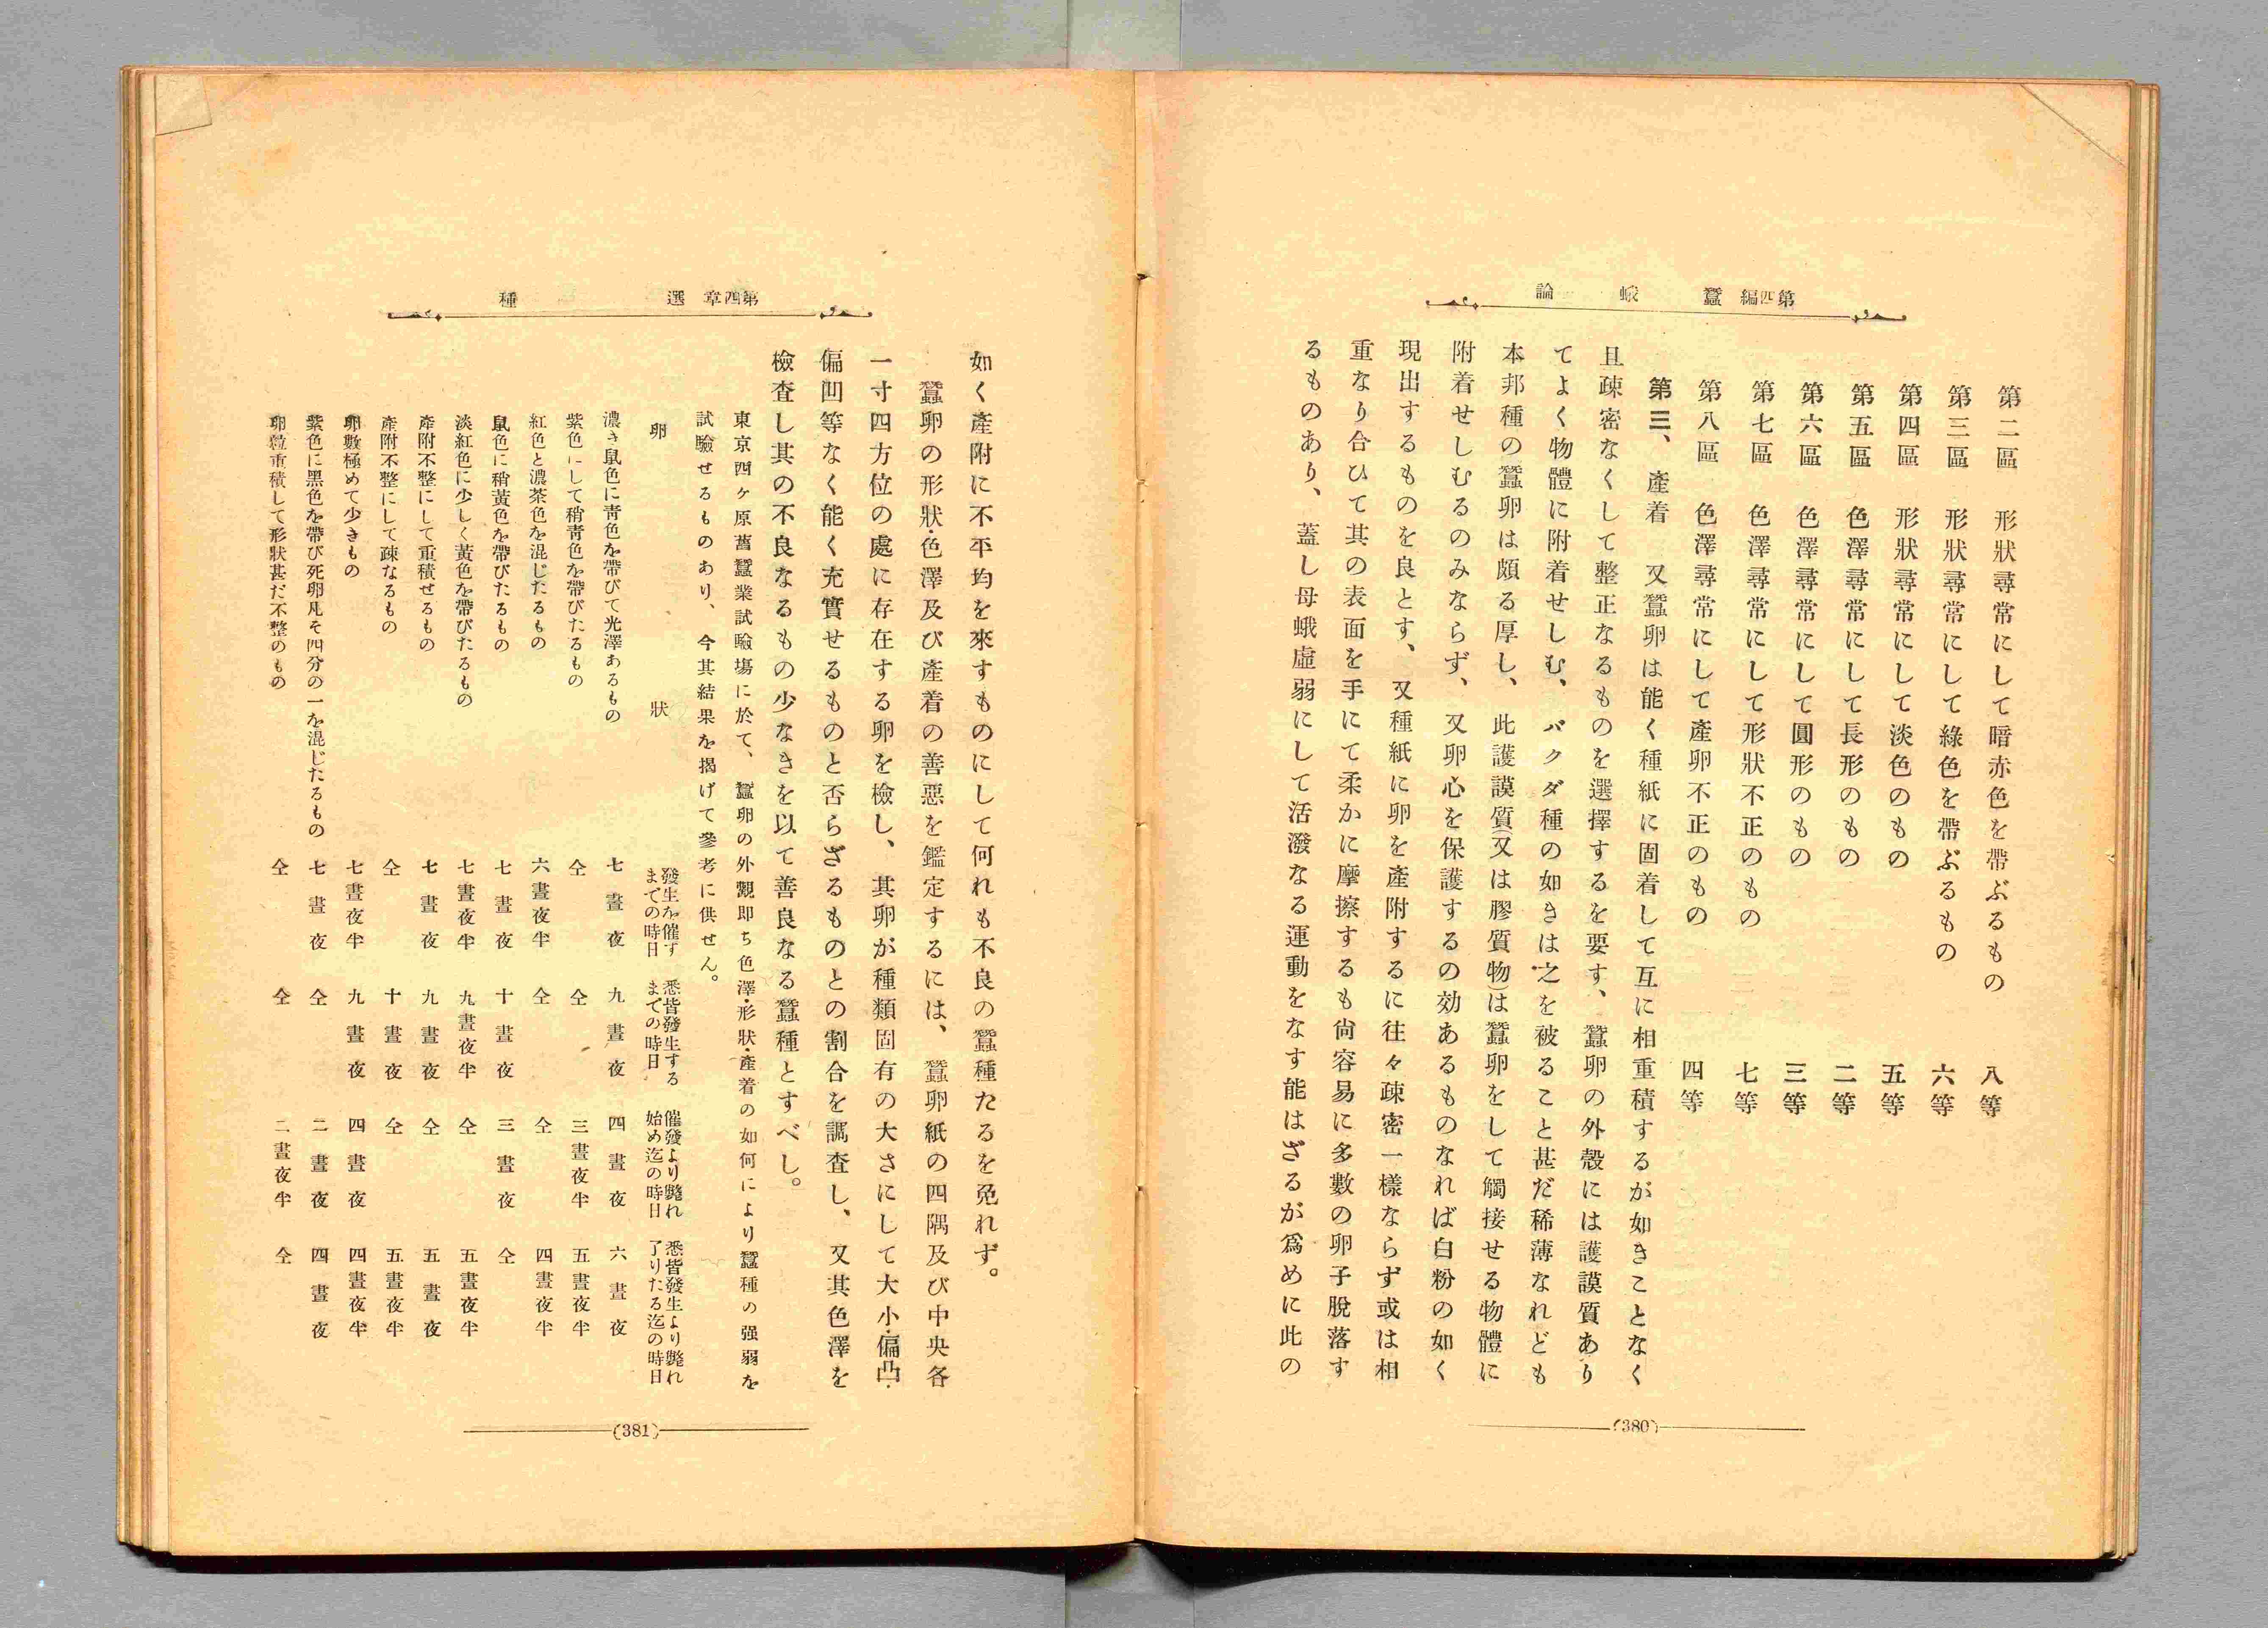 第四編　蠶　蛾　論
第二區　形狀尋常にして暗赤色を帶ぶるもの　八等
第三區　形狀尋常にして綠色を帶ぶるもの　六等
第四區　形狀尋常にして淡色のもの　五等
第五區　色澤尋常にして長形のもの　二等
第六區　色澤尋常にして圓形のもの　三等
第七區　色澤尋常にして形狀不正のもの　七等
第八區　色澤尋常にして產卵不正のもの　四等
第三、產着　又蠶卵は能く種紙に固着して互に相重積するが如きことなく
且疎密なくして整正なるものを選擇するを要す、蠶卵の外殼には護謨質あり
てよく物體に附着せしむ、バクダ種の如きは之を被ること甚だ稀薄なれども
本邦種の蠶卵は頗る厚し、此護謨質(又は膠質物)は蠶卵をして觸接せる物體に
附着せしむるのみならず、又卵心を保護するの効あるものなれば白粉の如く
現出するものを良とす、又種紙に卵を產附するに往々疎密一樣ならず或は相
重なり合ひて其の表面を手にて柔かに摩擦するも尙容易に多數の卵子脫落す
るものあり、蓋し母蛾虛弱にして活潑なる運動をなす能はざるが爲めに此の
(380)
第四章　選　種
如く產附に不平均を來すものにして何れも不良の蠶種たるを免れず。
蠶卵の形狀・色澤及び產着の善惡を鑑定するには、蠶卵紙の四隅及び中央各
一寸四方位の處に存在する卵を檢し、其卵が種類固有の大さにして大小・偏凸・
偏凹等なく能く充實せるものと否らざるものとの割合を調査し、又其色澤を
檢査し其の不良なるもの少なきを以て善良なる蠶種とすべし。
東京西ヶ原舊蠶業試驗場に於て、蠶卵の外觀即ち色澤・形狀・產着の如何により蠶種の强弱を
試驗せるものあり、今其結果を揭げて參考に供せん。
卵　狀　發生を催すまでの時日　悉皆發生するまでの時日　催發より斃れ始め迄の時日　悉皆發生より斃れ了りたる迄の時日
濃き鼠色に靑色を帶びて光澤あるもの　七晝夜　九晝夜　四晝夜　六晝夜
紫色にして稍靑色を帶びたるもの　仝　仝　三晝夜半　五晝夜半
紅色と濃茶色を混じたるもの　六晝夜半　仝　仝　四晝夜半
鼠色に稍黃色を帶びたるもの　七晝夜　十晝夜　三晝夜　仝
淡紅色に少しく黃色を帶びたるもの　七晝夜半　九晝夜半　仝　五晝夜半
產附不整にして重積せるもの　七晝夜　九晝夜　仝　五晝夜
產附不整にして疎なるもの　仝　十晝夜　仝　五晝夜半
卵數極めて少きもの　七晝夜半　九晝夜　四晝夜　四晝夜半
紫色に黑色を帶び死卵凡そ四分の一を混じたるもの　七晝夜　仝　二晝夜　四晝夜
卵粒重積して形狀甚だ不整のもの　仝　仝　二晝夜半　仝
(381)